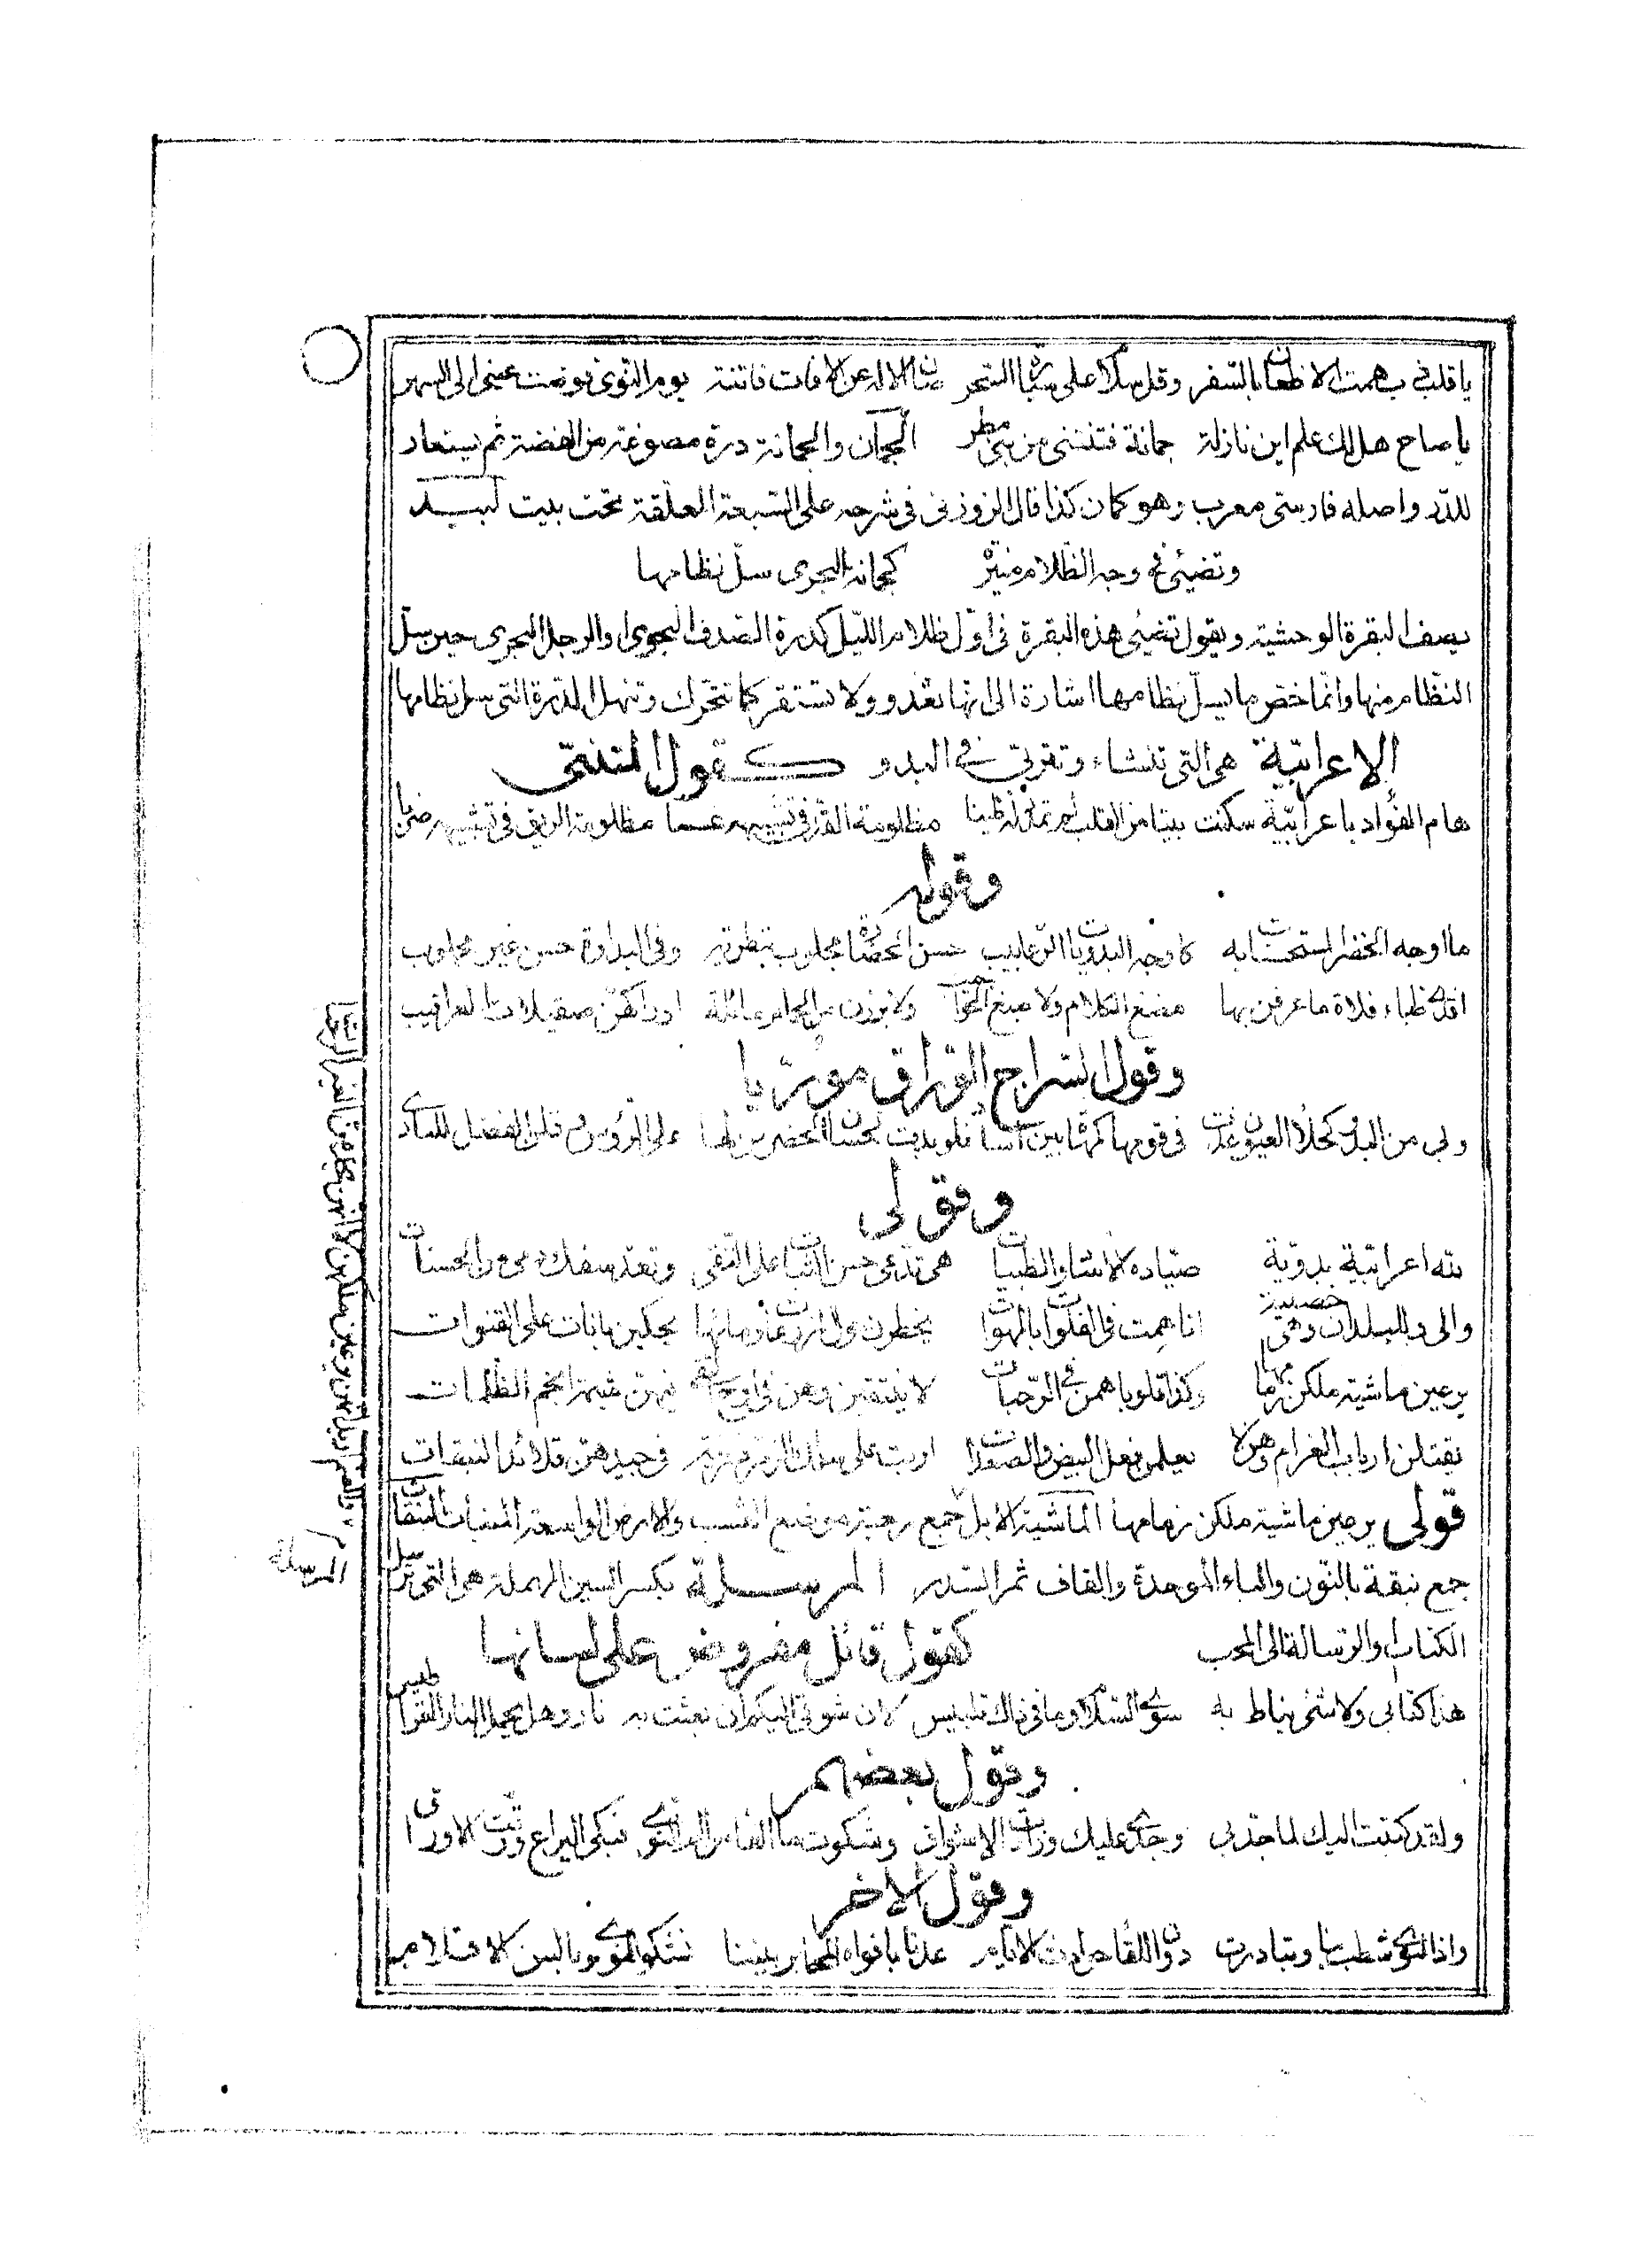 يا قلب همت الاظعان بالسفر وقل سلاما على ربة السحر صان الاله عن الافات فاتنة يوم النوى فوضت عينى الى السهر
يا صاح هل لك علم اين نازلة جمانة فتنتنى من بنى مطر الجمان والجمانة درة مصوغة من الفضة ثم يستعار
للدر واصله فارسى معرب وهو كمان كذا قال الزوزنى فى شرحه على السبعة المعلقة تحت بيت لبيد
وتضيئ فى وجه الظلام منيرة كجمانة البحرى سل نظامها
يصف البقرة الوحشية ويقول تضيئ هذه البقرة فى اول ظلام الليل كدرة الصدف البحرى او الرجل البحرى حين سل
النظام منها وانما خص ما يسل نظامها اشارة الى انها تعدو ولا تستقر كما تتحرك وتنهل الدرة التى سل نظامها
الاعرابية هى التى تنشاء وتقربى فى البدو كقول المتنبى
هام الفؤاد باعرابية سكنت بيتا من القلب لم تمدد له طنبا مظلومة القد فى تشبيهه غصنا مظلومة الريق فى تشبيهه ضربا
وقوله
ما اوجه الحضر المستحسنات به كاوجه البدويات الرعابيب حسن الحضارة مجلوب بتطرية وفى البداوة حسن غير مجلوب
افدى ظباء فلاة ما عرفن بها مضغ الكلام ولا صبغ الحواجيب ولا برزن من الحمام مائلة اوراكهن صقيلات العراقيب
وقول السراج الوراق موريا
وبى من البدو كحلاء العيون غدت فى قومها كمهاة بين آساد فلو بدت لحسان الحضر قمن لها على الرؤس وقلن الفضل للبادى
وقولى
لله اعرابية بدوية صيادة للاسد والظبيات هى تدعى حسن الثبات على التقى وتعد سفك دمى من الحسنات
والى وللبلدان وهى خصيبة انا همت فى الفلوات بالمهوات يخطرن حول يحكين بانات على القنوات
يرعين ماشية ملكن زمامها وكذا قلوبا همن فى الرحبات لا ينتقبن وهن فى شيمة انجم الظلمات
يقتلن ارباب الغرام وهن لا يعلمن فعل البيض والصعدات اربت على سلك الزمرد فى جيدهن قلائد النبقات
قولى يرعين ماشية ملكن زمامها الماشية الابل جمع رحبة موضع العشب والارض الواسعة النبقات
جمع نبقة بالنون والباء الموحدة والقاف ثمر السدر المرسلة بكسر السين المهملة هى التى ترسل
الكتاب او الرسالة الى المحب كقول قائل مفروض على لسانها
هذا كتابى ولا شئ يناط به سوى السلام وما فى ذاك تلبيس لان شوقى اليكم ان بعثت به نار وهل يحمل النار القراطيس
وقول بعضهم
ولقد كتبت اليك لما جد بى وجدى عليك وزادت الاشواق وشكوت ما القاه من الم النوى فبكى اليراع ورقت الاوراق
وقول الاخر
واذا النوى شطت بنا وتبادرت دون اللقا حوادث الايام عدنا بافواه المحابر بيننا نشكو الهوى بالسن الاقلام
المرسلة